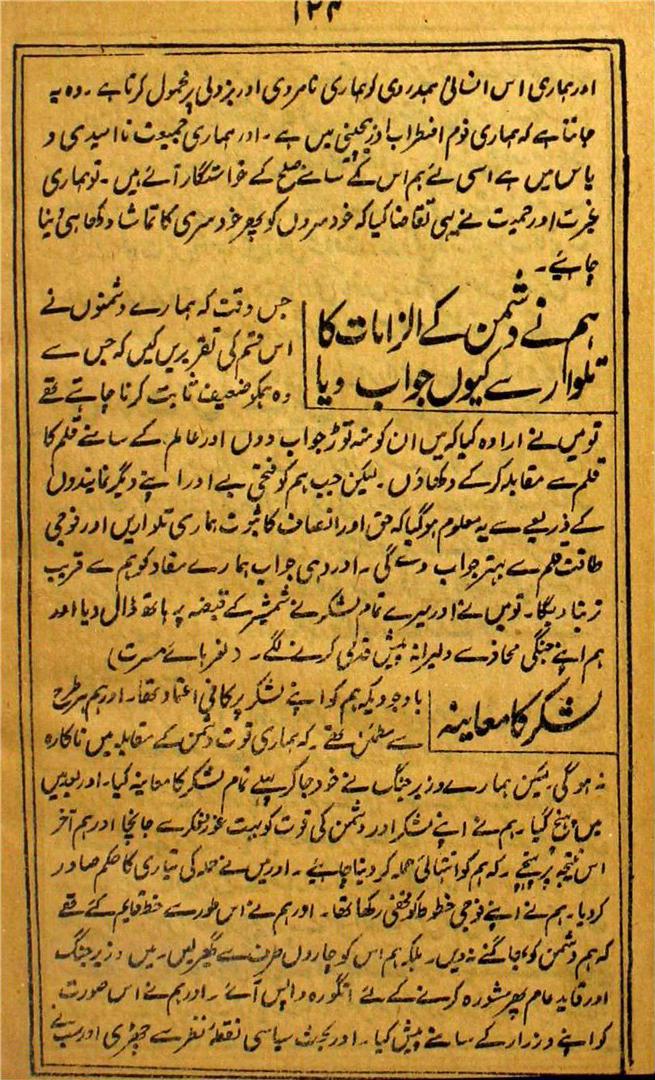 ۱۲۴
اور ہماری اس انسانی ہمدردی کو ہماری نامردی اور بزدلی پر محمول کرتا ہے ۔ وہ یہ
جانتا ہے کہ ہماری قوم اضطراب اور بیچینی میں ہے ۔ اور ہماری جمیعت نا امیدی و
یاس میں ہے اسی لئے ہم اس کے سامنے صلح کے خواستگار آئے ہیں ۔ تو ہماری
غیرت اور حمیت نے یہی تقاضا کیا کہ خودسروں کو پھر خودسری کا تماشا دکھا ہی دینا
چاہئے ۔
ہم نے دشمن کے الزامات کا
تلوار سے کیوں جواب دیا
جس وقت کہ ہمارے دشمنوں نے
اس قسم کی تقریریں کیں کہ جس سے
وہ ہمکو ضعیف ثابت کرنا چاہتے تھے
تو میں نے ارادہ کیا کہ میں ان کو منہ توڑ جواب دوں اور عالم کے سامنے قلم کا
قلم سے مقابلہ کر کے دکھاؤں ۔ لیکن جب ہم کو فتحی بے اور اپنے دیگر نمایندوں
کے ذریعے سے یہ معلوم ہو گیا کہ حق اور انصاف کا ثبوت ہماری تلواریں اور فوجی
طاقت قلم سے بہتر جواب دے گی ۔ اور وہی جواب ہمارے مفاد کو ہم سے قریب
تر بنا دیگا ۔ تو میں نے اور میرے تمام لشکر نے شمشیر کے قبضہ پر ہاتھ ڈال دیا اور
ہم اپنے جنگی محاذ سے دلیرانہ پیش قدمی کرنے لگے ۔ (نعرہائے مسرت)
لشکر کا معاینہ
باوجودیکہ ہم کو اپنے لشکر پر کافی اعتماد تھا ۔ اور ہم ہر طرح
سے مطمئن تھے ۔ کہ ہماری قوت دشمن کے مقابلہ میں ناکارہ
نہ ہو گی ۔ لیکن ہمارے وزیر جنگ نے خود جا کر پہلے تمام لشکر کا معاینہ کیا ۔ اور بعد میں
میں پہنچ گیا ۔ ہم نے اپنے لشکر اور دشمن کی قوت کو بہت غور و فکر سے جانچا اور ہم آخر
اس نتیجہ پر پہنچے ۔ کہ ہم کو انتہائی حملہ کر دینا چاہیئے ۔ اور میں نے حملہ کی تیاری کا حکم صادر
کر دیا ۔ ہم نے اپنے فوجی خطوط کو مخفی رکھا تھا ۔ اور ہم نے اس طور سے خط قایم کئے تھے
کہ ہم دشمن کو بھاگنے نہ دیں ۔ بلکہ ہم اس کو چاروں طرف سے گھیر لیں ۔ میں وزیر جنگ
اور قاید عام پھر مشورہ کرنے کے لئے انگورہ واپس آئے ۔ اور ہم نے اس صورت
کو اپنے وزراء کے سامنے پیش کیا ۔ اور بحث سیاسی نقطۂ نظر سے چھڑی اور سب نے